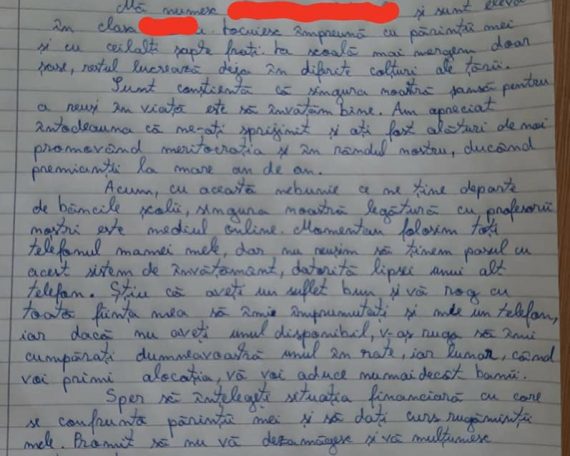 Mă numesc și sunt elevă
în clasa locuiesc împreună cu părinții mei
și cu ceilalți șapte frați. La școală mai mergem doar
șase, restul lucrează deja în diferite colțuri ale țării.
Sunt conștientă că singura noastră șansă pentru
a reuși în viață este să învățăm bine. Am apreciat
întodeauna că ne-ați sprijinit și ați fost alături de noi
promovând meritocrația și în rândul nostru, ducând
premianții la mare an de an.
Acum, cu această nebunie ce ne ține departe
de băncile școlii, singura noastră legătură cu profesorii
noștri este mediul online. Momentan folosim toți
telefonul mamei mele, dar nu reușim să ținem pasul cu
acest sistem de învățământ, datorită lipsei unui alt
telefon. Știu că aveți un suflet bun și vă rog cu
toată ființa mea să îmi împrumutați și mie un telefon,
iar dacă nu aveți unul disponibil, v-aș ruga să îmi
cumpărați dumneavoastră unul în rate, iar lunar, când
voi primi alocația, vă voi aduce numaidecât banii.
Sper să înțelegeți situația financiară cu care
se confruntă părinții mei și să dați curs rugăminții
mele. Promit să nu vă dezamăgesc și vă mulțumesc